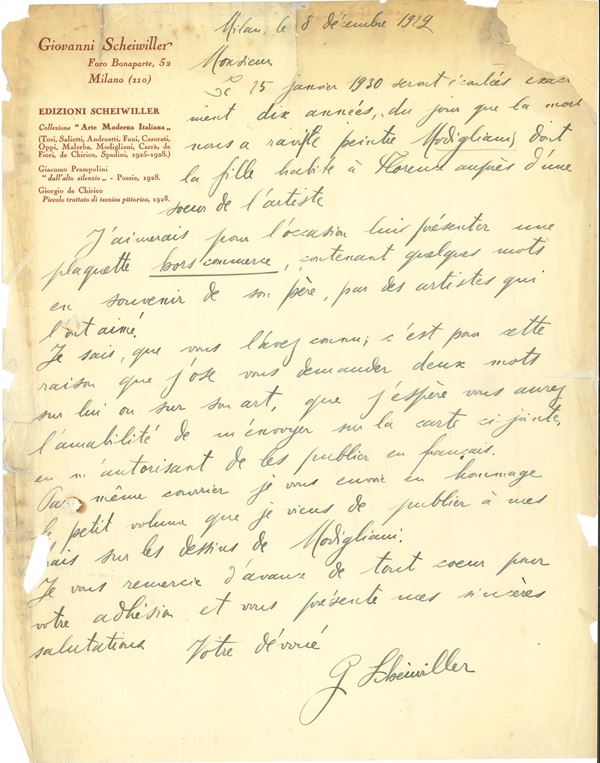 Giovanni Scheiwiller
Foro Bonaparte, 52
Milano (110)
EDIZIONI SCHEIWILLER
Collezione "Arte Moderna Italiana„
(Tosi, Salietti, Andreotti, Funi, Casorati,
Oppi, Malerba, Modigliani, Carrà, de
Fiori, de Chirico, Spadini, 1925-1928.)
Giacomo Prampolini
"dall'alto silenzio„ - Poesie, 1928.
Giorgio de Chirico
Piccolo trattato di tecnica pittorica, 1928.
Milan, le 8 décembre 1929
Monsieur
Le 25 janvier 1930 seront écoulés exac
ment dix années, du jour que la mort
nous a ravi le peintre Modigliani, dont
la fille habite à Florence auprès d'une
soeur de l'artiste
J'aimerais pour l'occasion lui présenter une
plaquette hors commerce, contenant quelques mots
en souvenir de son père, par des artistes qui
l'ont aimé.
Je sais, que vous l'avez connu; c'est pour cette
raison que j'ose vous demander deux mots
sur lui ou sur son art, que j'espère vous aurez
l'amabilité de m'envoyer sur la carte ci jointe,
en m'autorisant de les publier en français.
Par même courrier je vous envoie en hommage
le petit volume que je viens de publier à mes
frais sur les dessins de Modigliani.
Je vous remercie d'avance de tout coeur pour
votre adhésion et vous présente mes sincères
salutations Votre dévoué
G Scheiwiller